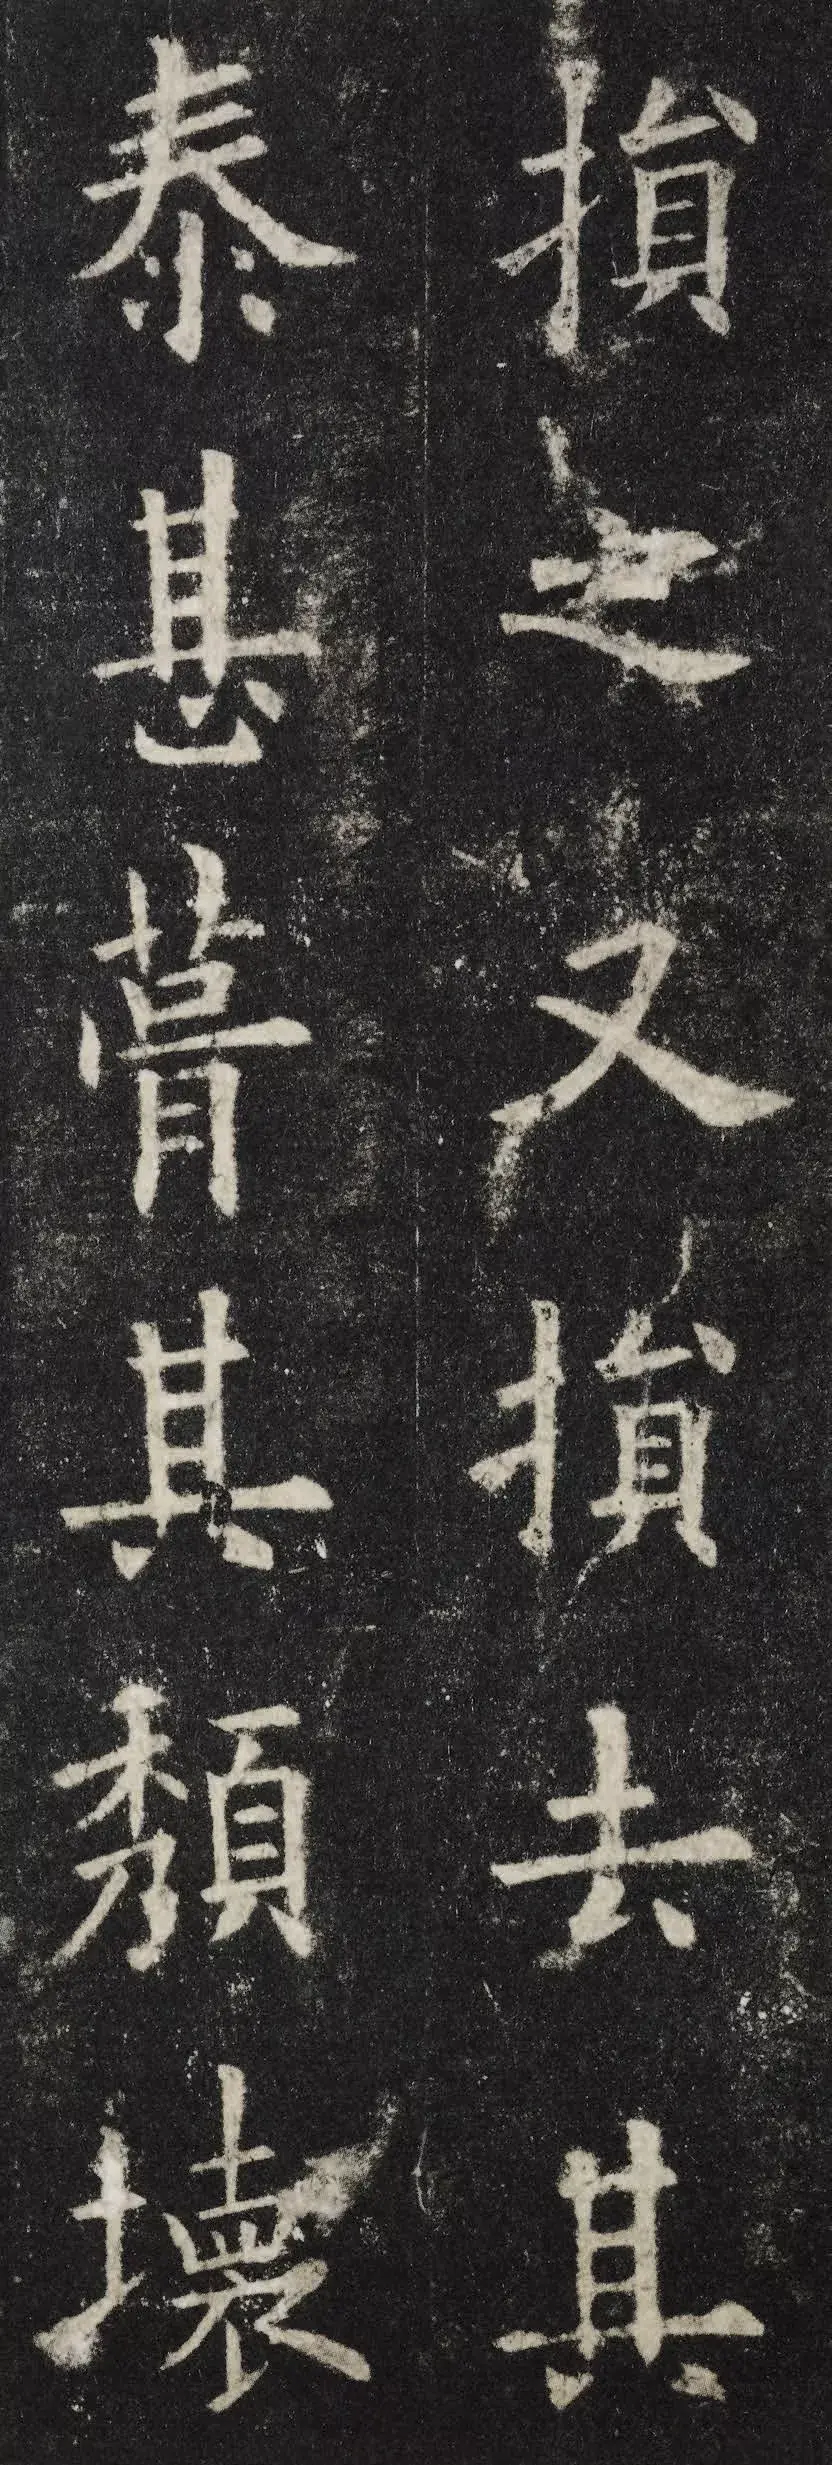 損之又損去其
泰甚葺其頹壞